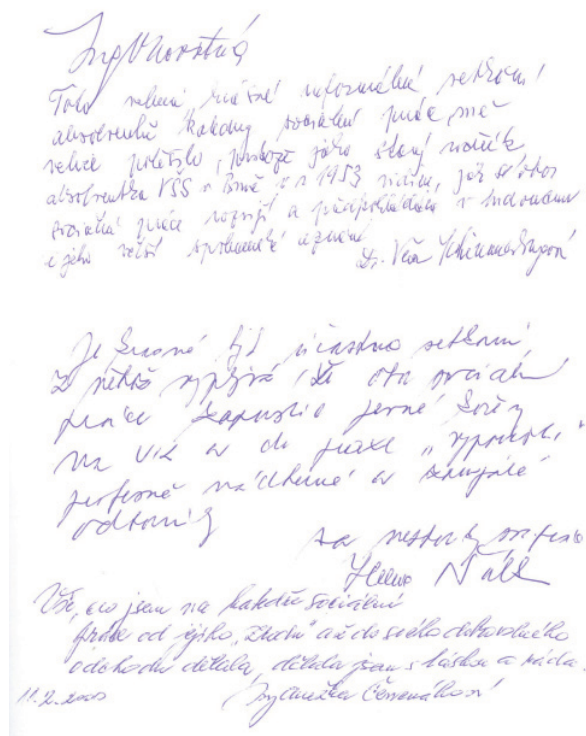 Ing Novotná
Toto velmi krásné neformální setkání
absolventů katedry sociální práce mě
velice potěšilo, protože jako starý
absolventka VŠS v Brně v r. 1953 vidím, jak se obor
sociální práce rozvíjí a předpokládám v budoucnu
i jeho větší společenské uznání
Dr. Věra
Je krásné být účastna setkání
z něhož vyplývá, že obor sociální
práce zapustil pevné kořeny
na VŠE a do praxe „
profesně nadšené a zanícené
odborníky
za
Helena
Vše, co jsem na katedře sociální
práce od jejího „zrodu“ až do svého dobrovolného
odchodu dělala, dělala jsem s láskou a ráda.
11.2.2000
Ing Anežka Červenáková